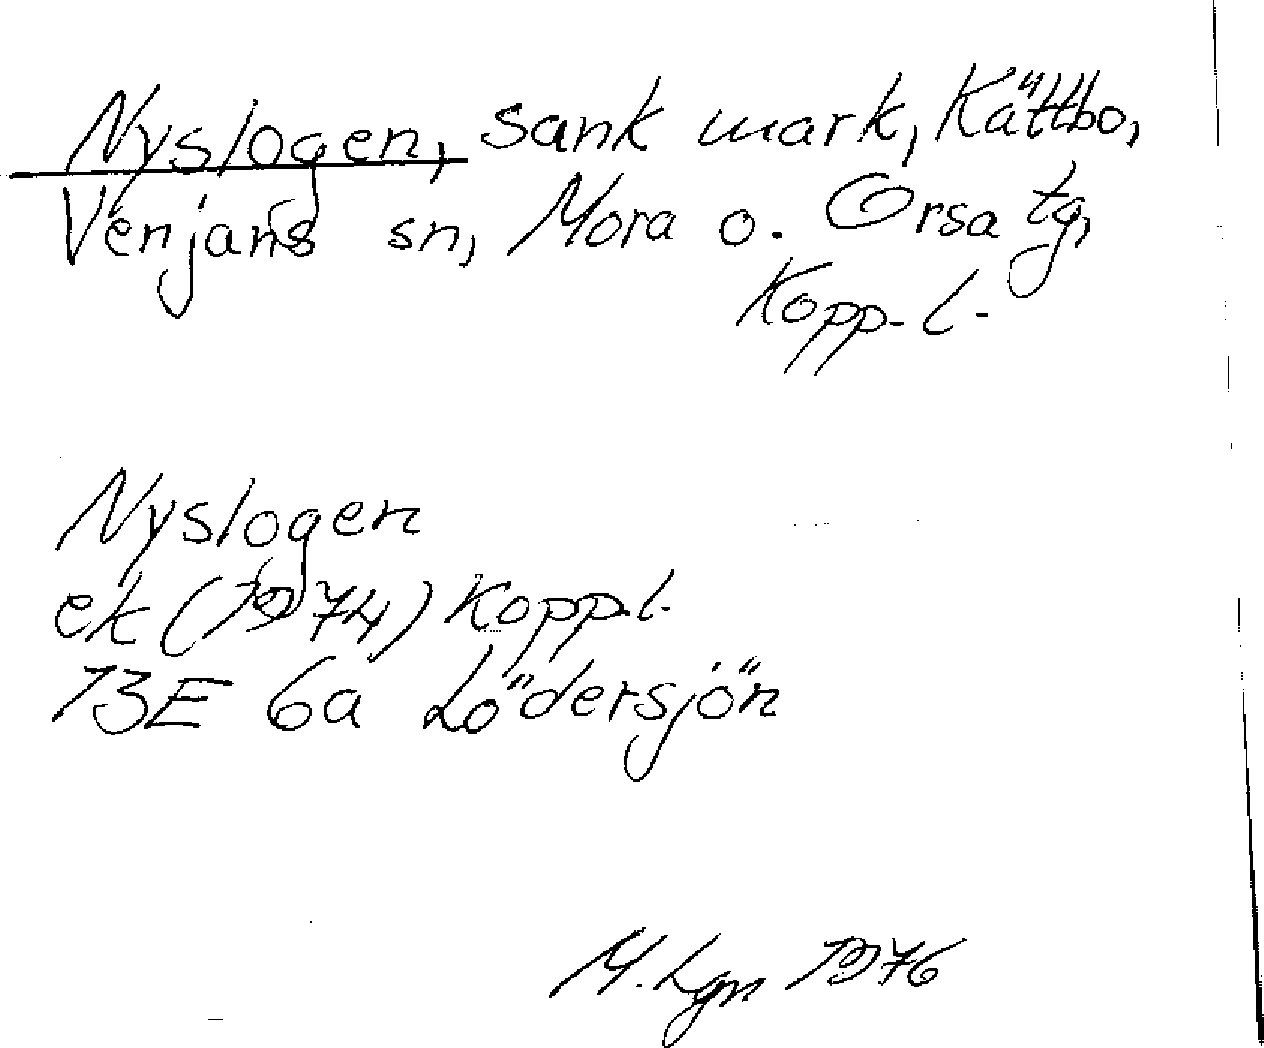 Nyslogen, sank mark, Kättbo,
Venjans sn, Mora o. Orsa tg,
Kopp. l.
Nyslogen
ek (1974) Kopp.l.
13E 6a Lödersjön
M. Lgn 1976